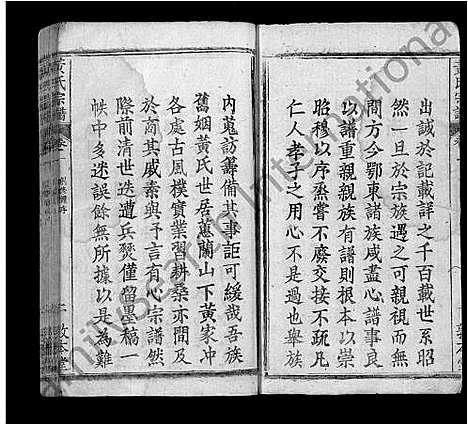 出誠於記載詳之千百載世系昭
然一旦於宗族遇之可親視而無
間方今鄂東諸族咸盡心譜事良
以譜重親親族有譜則根本以崇
昭穆以序烝嘗不廢交接不疏凡
仁人孝子之用心不是過也舉族
內蒐訪籌備其事詎可緩哉吾族
舊姻黃氏世居蕙蘭山下黃家冲
各處古風樸實業習耕桑亦間及
於商其戚素與予言有心宗譜然
際前清世迭遭兵燹僅留墨稿一
帙中多迷誤餘無所據以是為難
黃氏宗譜
卷一
敦本堂